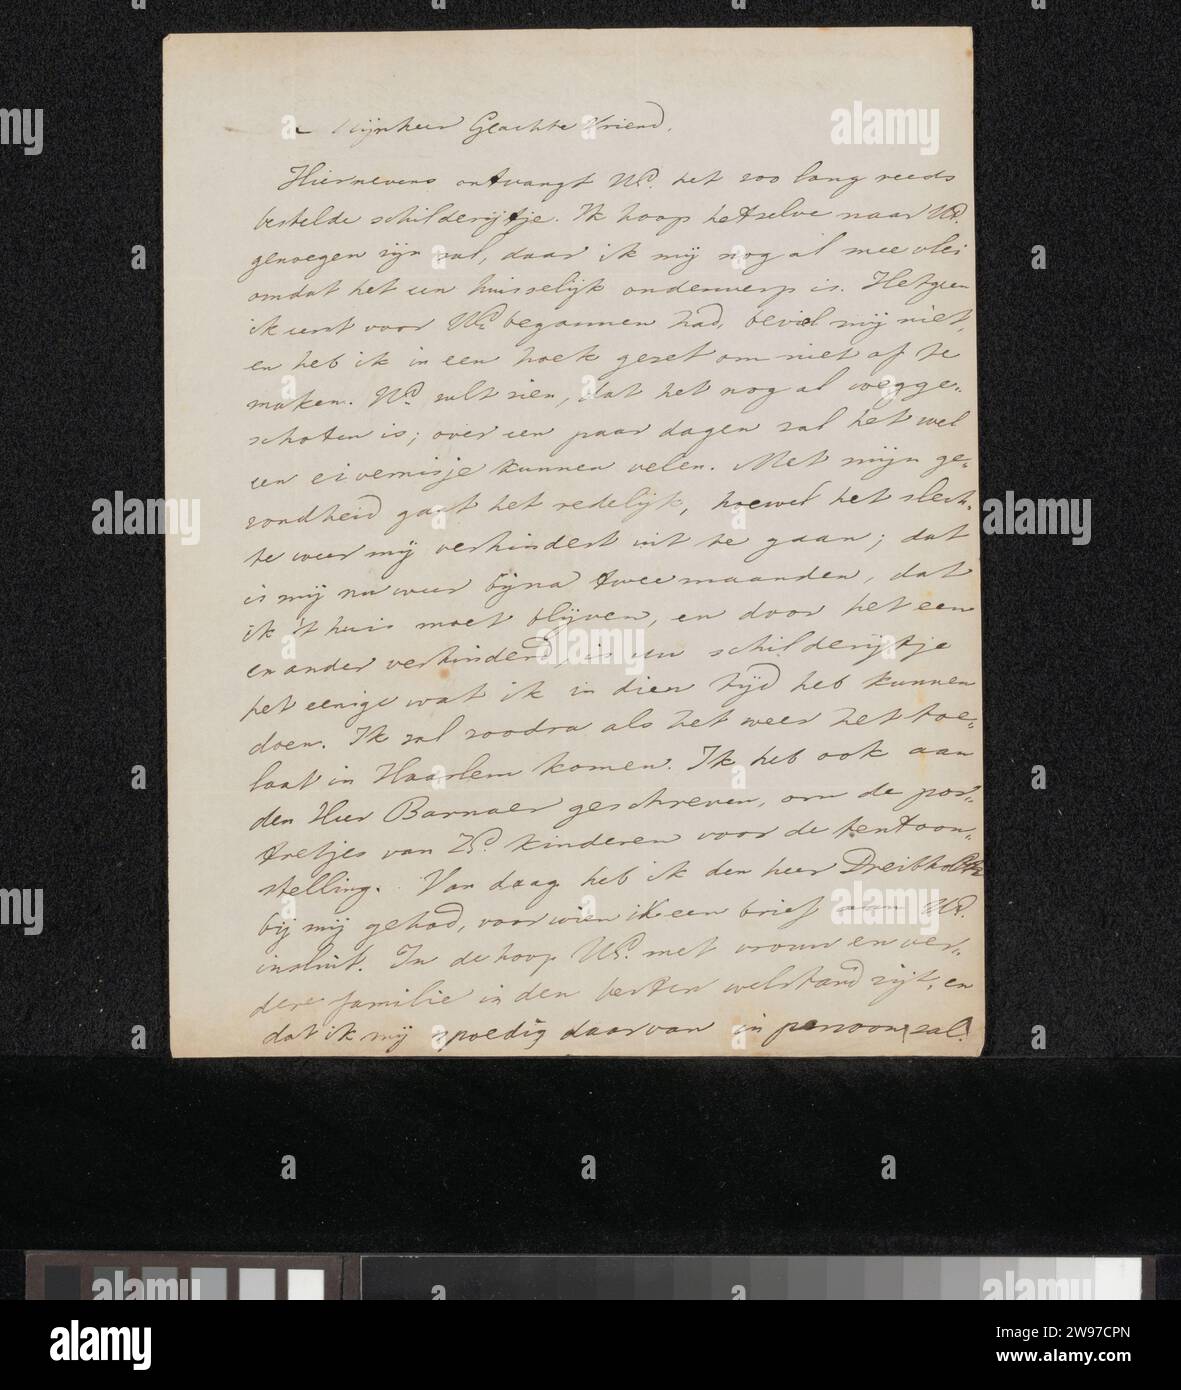 Mijnheer Geachte Vriend,
Hiernevens ontvangt UEd. het zoo lang reeds
bestelde schilderijtje. Ik hoop hetzelve naar UEd.
genoegen zijn zal, daar ik mij nog al mee vlei
omdat het een huisselijk onderwerp is. Hetgeen
ik eerst voor UEd. begonnen had, beviel mij niet,
en heb ik in een hoek gezet om niet af te
maken. UEd. zult zien, dat het nog al wegge=
schoten is; over een paar dagen zal het wel
een eivernisje kunnen velen. Met mijn ge=
zondheid gaat het redelijk, hoewel het slech=
te weer mij verhindert uit te gaan; dat
is mij nu weer bijna twee maanden, dat
ik 't huis moet blijven, en door het een
en ander verhinderd, is uw schilderijtje
het eenige wat ik in dien tijd heb kunnen
doen. Ik zal zoodra als het weer het toe=
laat in Haarlem komen. Ik heb ook aan
den Heer Barnaer geschreven, om de por=
tretjes van ZEd. kinderen voor de tentoon=
stelling. Van daag heb ik den heer Dreibholtz
bij mij gehad, voor wien ik een brief aan UEd.
insluit. In de hoop UEd. met vrouw en ver=
dere familie in den besten welstand zijt, en
dat ik mij spoedig daarvan in persoon zal
alamy
alamy
Image ID: 2W97CPN
www.alamy.com